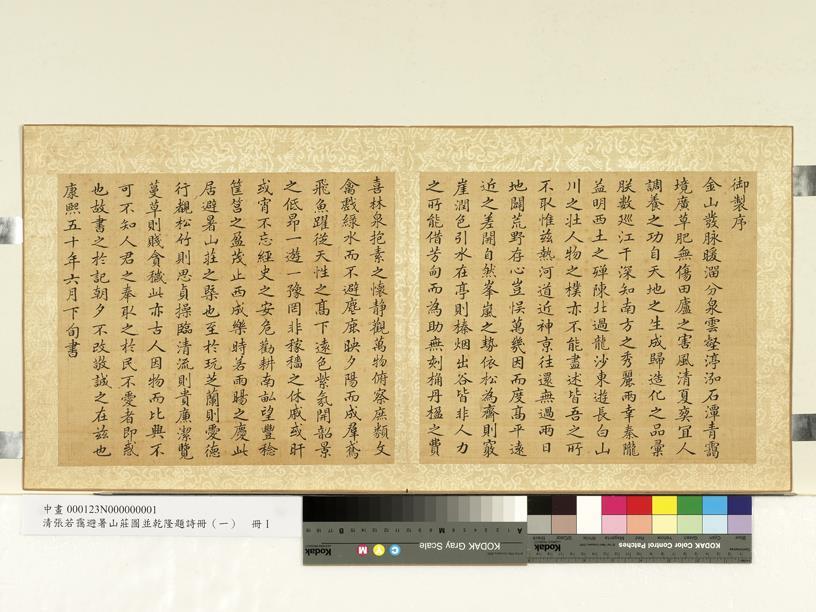 御製序
金山發脉暖溜分泉雲壑渟泓石潭青靄
境廣草肥無傷田廬之害風清夏爽宜人
調養之功自天地之生成歸造化之品彙
朕數巡江干深知南方之秀麗兩幸秦隴
益明西土之殫陳北過龍沙東遊長白山
川之壯人物之樸亦不能盡述皆吾之所
不取惟茲熱河道近神京往還無過兩日
地闢荒野存心豈悮萬幾因而度高平遠
近之差開自然峯嵐之勢依松為齋則竅
崖潤色引水在亭則榛烟出谷皆非人力
之所能借芳甸而為助無刻桷丹楹之費
喜林泉抱素之懷靜觀萬物俯察庶類文
禽戲綠水而不避麀鹿映夕陽而成羣鳶
飛魚躍從天性之高下遠色紫氛開韶景
之低昂一遊一豫罔非稼穡之休戚或旰
或宵不忘經史之安危勸耕南畝望豐稔
筐筥之盈茂止西成樂時若雨暘之慶此
居避暑山莊之槩也至於玩芝蘭則愛德
行覩松竹則思貞操臨清流則貴廉潔覽
蔓草則賤貪穢此亦古人因物而比興不
可不知人君之奉取之於民不愛者即惑
也故書之於記朝夕不改敬誠之在茲也
康熙五十年六月下旬書
中畫 000123N000000001
清張若靄避暑山莊圖並乾隆題詩冊（一） 冊 1
KODAK Gray Scale
Kodak
C Y M
A
M
B
KODAK Color Control Patches
Kodak
Blue
Cyan
Green
Yellow
Red
Magenta
White
3/Color
Black